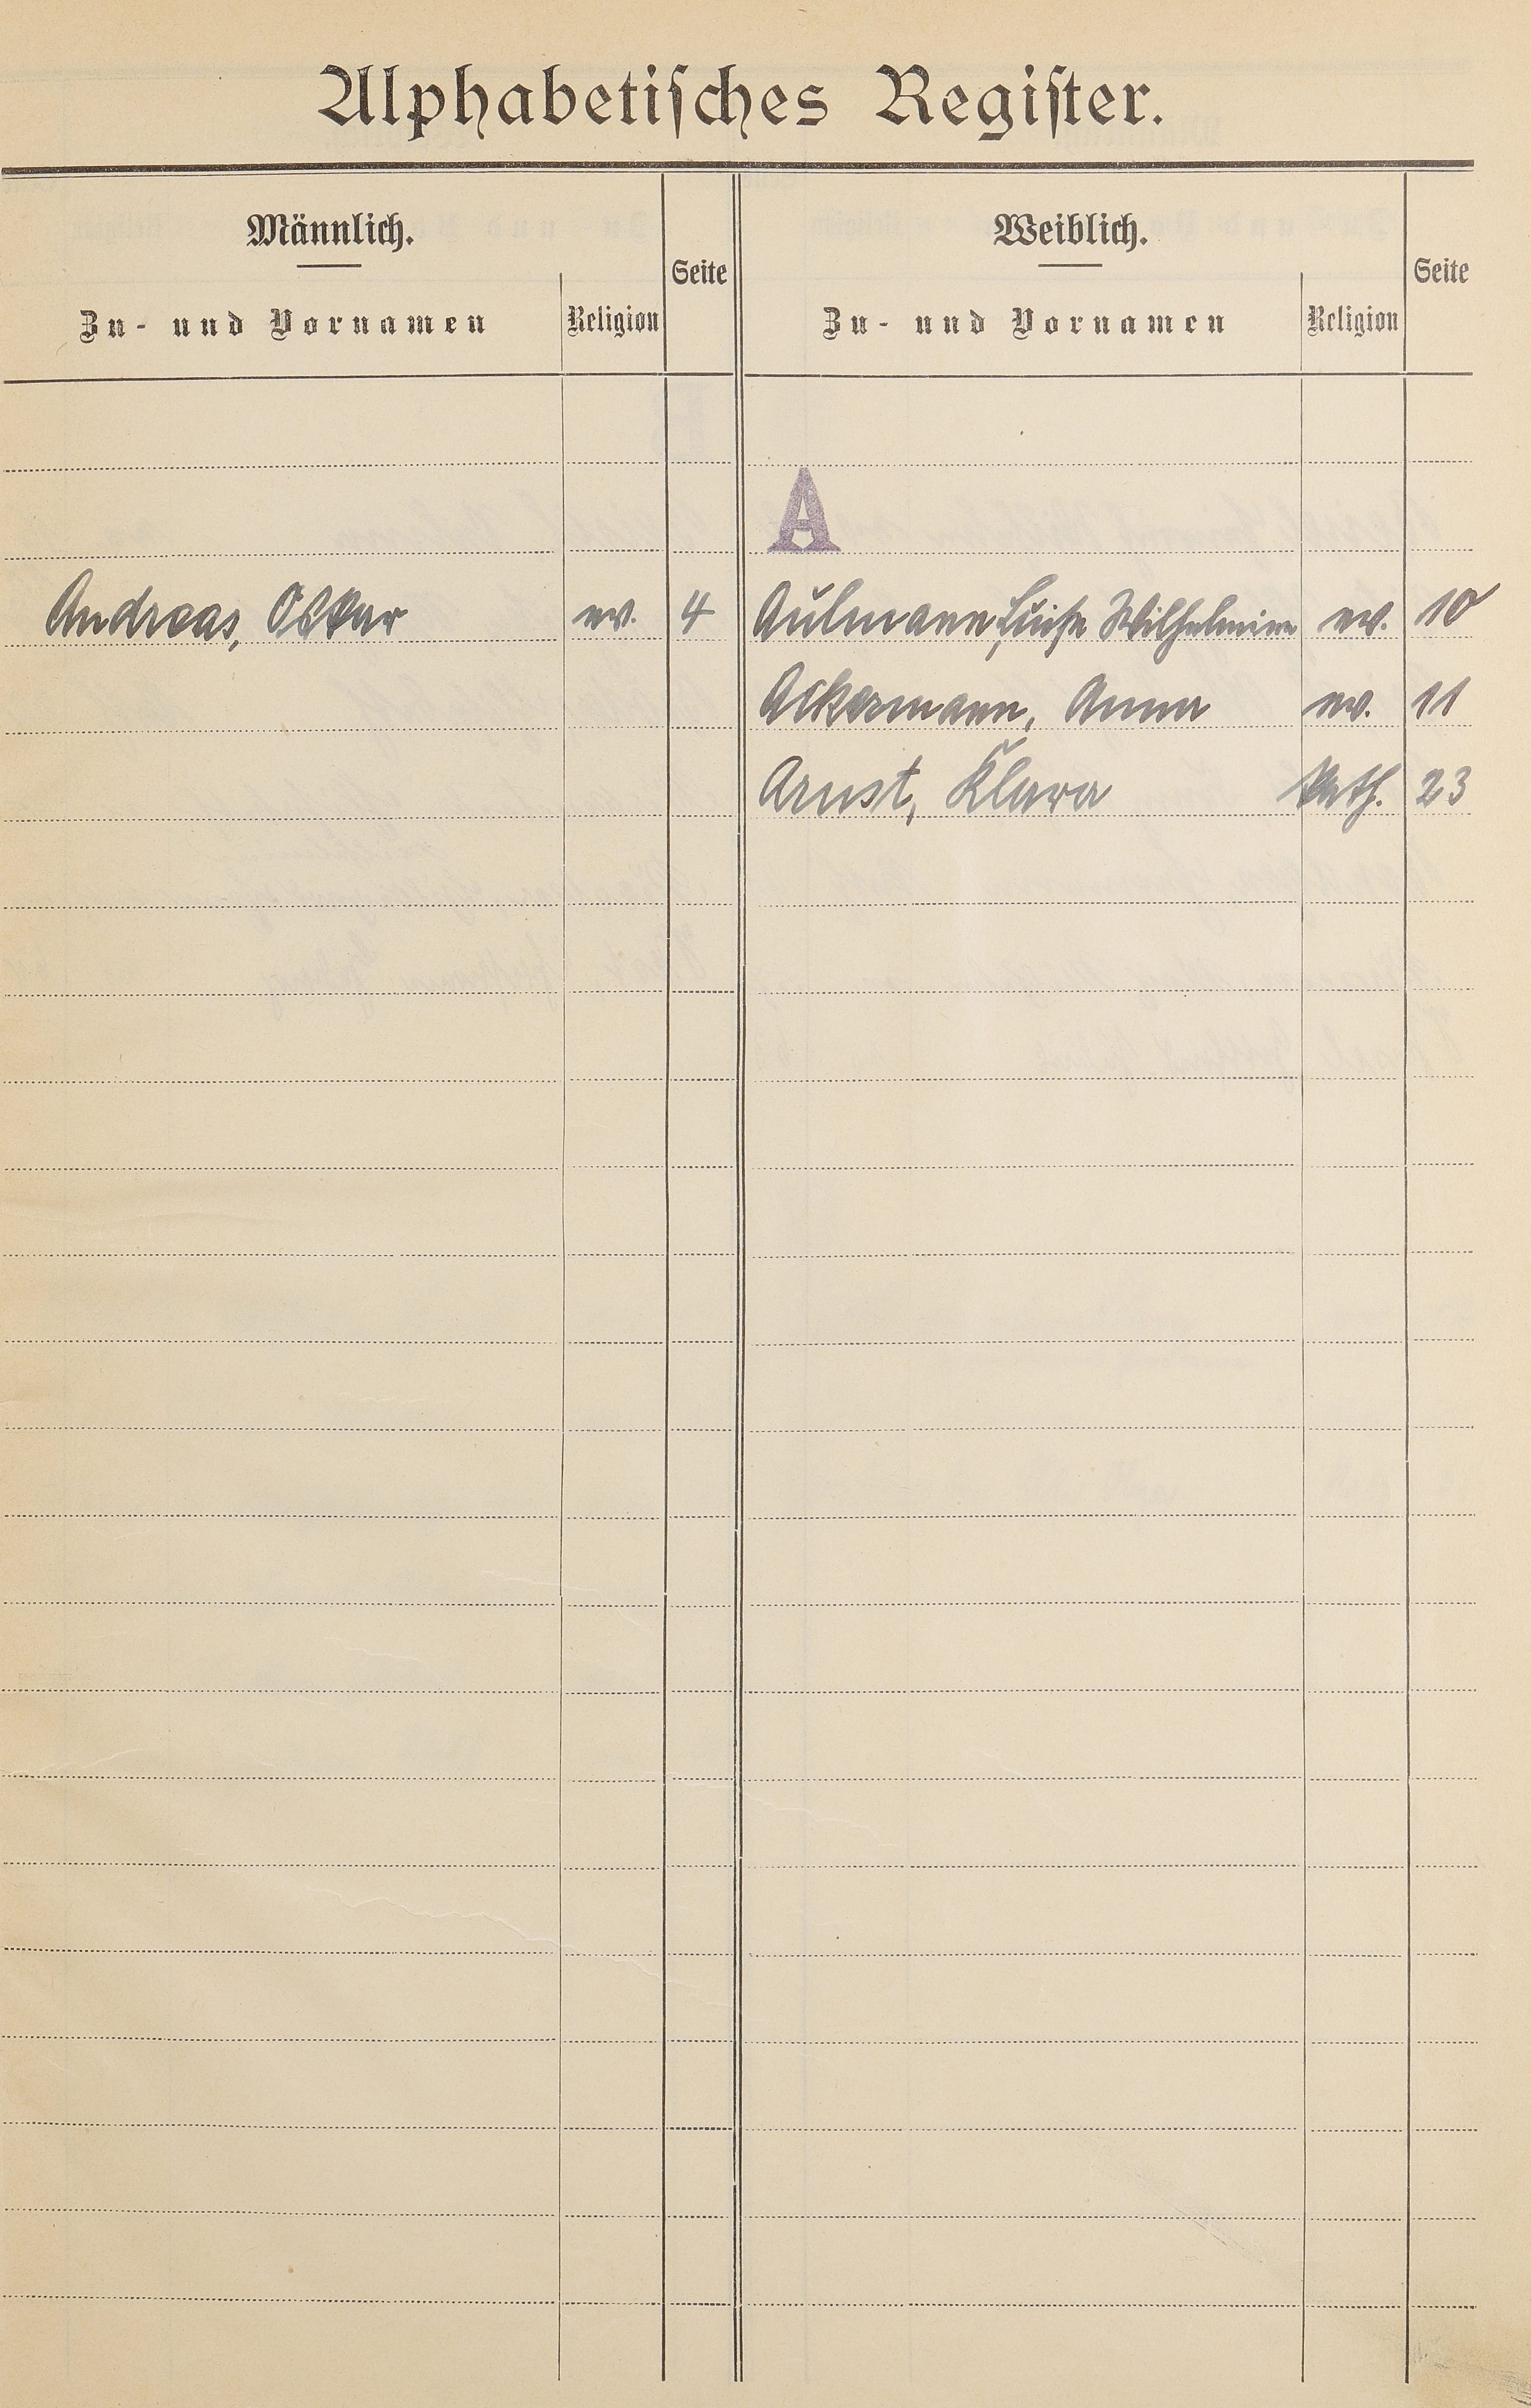 Alphabetisches Register.
Männlich. Seite Weiblich. Seite
Zu- und Vornamen Religion Zu- und Vornamen Religion
A
Andreas, Oskar ev. 4 Aulmann, Luise Wilhelmine ev. 10
Ackermann, Anna ev. 11
Arnst, Klara kath. 23